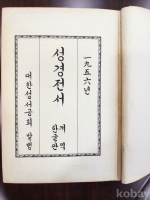 一九五六년
성경전서
개역
한글판
대한성서공회 발행
kobay